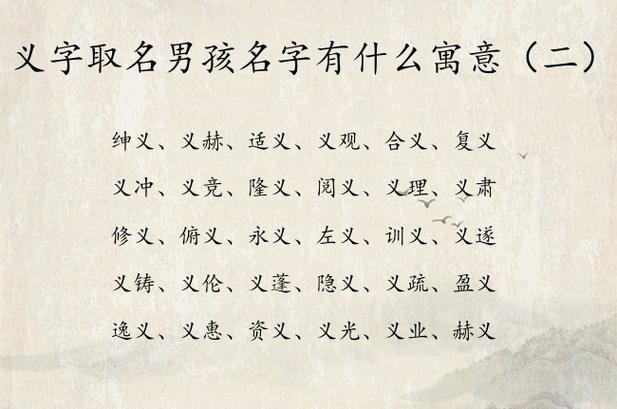 义字取名男孩名字有什么寓意（二）
绅义、义赫、适义、义观、合义、复义
义冲、义竞、隆义、阅义、义理、义肃
修义、俯义、永义、左义、训义、义遂
义铸、义伦、义蓬、隐义、义疏、盈义
逸义、义惠、资义、义光、义业、赫义